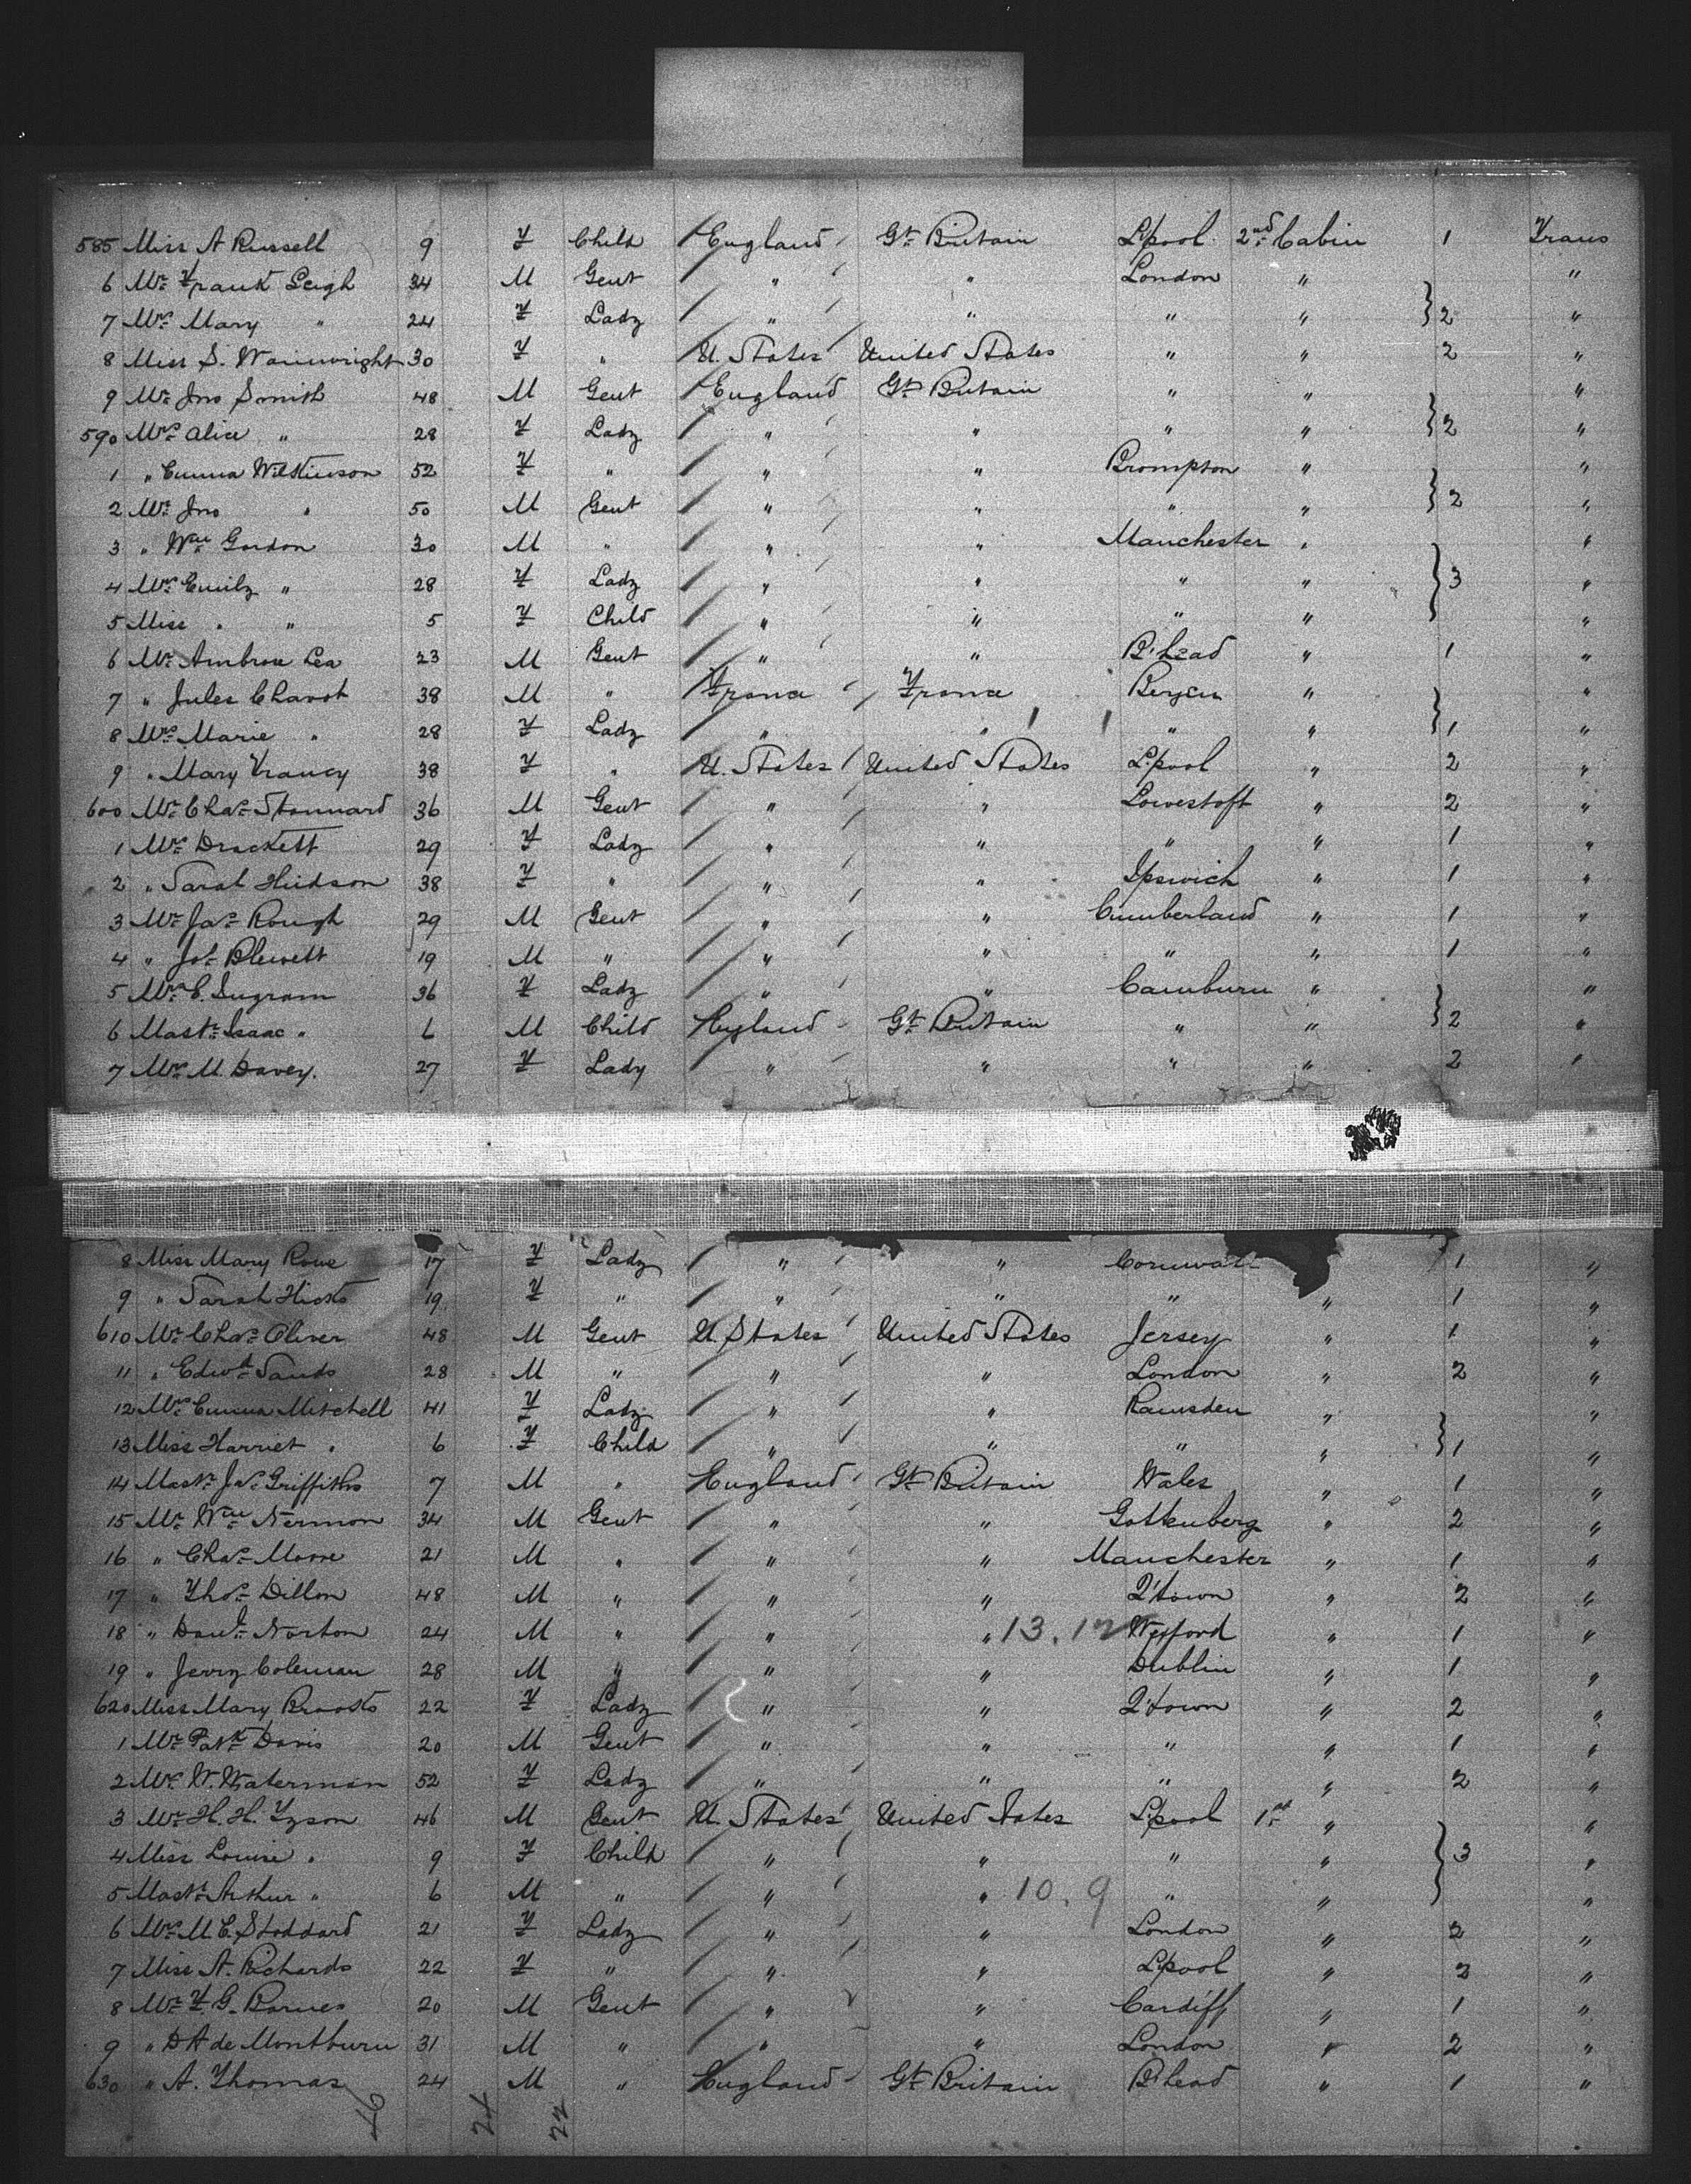 585 Miss A Russell 9 F Child England Gt. Britain L'pool 2nd Cabin 1 Trans
6 Mr. Frank Leigh 34 M Gent " " London " "
7 Mrs. Mary " 24 F Lady " " " " } 2 "
8 Miss S. Wainwright 30 F " U. States United States " " 2 "
9 Mr. Jno Smith 48 M Gent England Gt. Britain " " "
590 Mrs. Alice " 28 F Lady " " " " } 2 "
1 " Emma Wilkinson 52 F " " " Brompton " "
2 Mr. Jno " 50 M Gent " " " " } 2 "
3 " Wm. Gordon 30 M " " " Manchester " "
4 Mrs. Emily " 28 F Lady " " " " } 3 "
5 Miss " " 5 F Child " " " " "
6 Mr. Ambrose Lea 23 M Gent " " B'head " 1 "
7 " Jules Chavot 38 M " France France " "
8 Mrs. Marie " 28 F Lady " " " " } 1 "
9 " Mary 38 F " U. States United States L'pool " 2 "
600 Mr. Chas. Stannard 36 M Gent " " Lowestoft " 2 "
1 Mrs. Drackett 29 F Lady " " " " 1 "
2 " Sarah Hudson 38 F " " " Ipswich " 1 "
3 Mr. Jas. Rough 29 M Gent " " Cumberland " 1 "
4 " Jos. Blewett 19 M " " " " " 1 "
5 Mrs. E. Ingram 36 F Lady " " Camburn " "
6 Mastr. Isaac " 6 M Child England Gt. Britain " " } 2 "
7 Mrs. M. Davey. 27 F Lady " " " " 2 "
8 Miss Mary Rowe 17 F Lady " " Cornwall 1 "
9 " Sarah Hicks 19 F " " " " " 1 "
610 Mr. Chas. Oliver 48 M Gent U. States United States Jersey " 1 "
11 " Edwd. Sands 28 M " " " London " 2 "
12 Mrs. Emma Mitchell 41 F Lady " " Ramsden " "
13 Miss Harriet " 6 F Child " " " " } 1 "
14 Mastr. Jas. Griffiths 7 M " England Gt. Britain Wales " 1 "
15 Mr. Wm. Nermon 34 M Gent " " Gottenberg " 2 "
16 " Chas. Moore 21 M " " " Manchester " 1 "
17 " Thos. Dillon 48 M " " " Q'town " 2 "
18 " Danl. Norton 24 M " " " 13.12 Wexford " 1 "
19 " Jerry Coleman 28 M " " " Dublin " 1 "
620 Miss Mary Brooks 22 F Lady " " Q'town " 2 "
1 Mr. Patk. Davis 20 M Gent " " " " 1 "
2 Mrs. W. Waterman 52 F Lady " " " " 2 "
3 Mr. H. H. Tyson 46 M Gent U. States United States L'pool 1st " "
4 Miss Louise " 9 F Child " " " " } 3 "
5 Mastr. Arthur " 6 M " " " 10.9 " " "
6 Mrs. M. E. Stoddard 21 F Lady " " London " 2 "
7 Miss A. Richards 22 F " " " L'pool " 2 "
8 Mr. F. G. Barnes 20 M Gent " " Cardiff " 1 "
9 " D A de Montburn 31 M " " " London " 2 "
630 " A. Thomas 24 M " England Gt. Britain B'head " 1 "
46 24 22